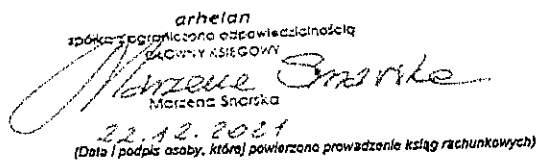 arhelan
spółka z ograniczoną odpowiedzialnością
GŁÓWNY KSIĘGOWY
Marzena Snarska
Marzena Snarska
22.12.2021
(Data i podpis osoby, której powierzono prowadzenie ksiąg rachunkowych)